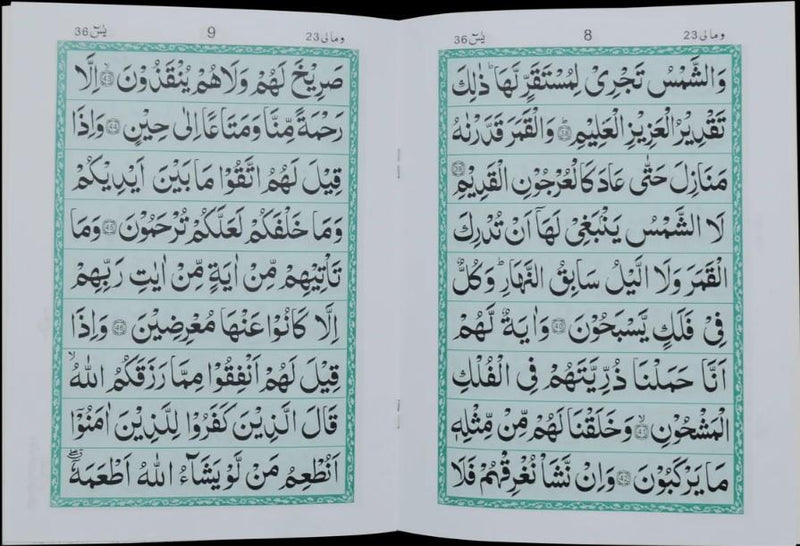 وما لی 23
8
یٰسٓ 36
وَالشَّمْسُ تَجْرِیْ لِمُسْتَقَرٍّ لَّهَا ؕ ذٰلِكَ
تَقْدِیْرُ الْعَزِیْزِ الْعَلِیْمِ ۝۳۸ وَالْقَمَرَ قَدَّرْنٰهُ
مَنَازِلَ حَتّٰی عَادَ كَالْعُرْجُوْنِ الْقَدِیْمِ ۝۳۹
لَا الشَّمْسُ یَنْۢبَغِیْ لَهَاۤ اَنْ تُدْرِكَ
الْقَمَرَ وَلَا الَّیْلُ سَابِقُ النَّهَارِ ؕ وَكُلٌّ
فِیْ فَلَكٍ یَّسْبَحُوْنَ ۝۴۰ وَاٰیَةٌ لَّهُمْ
اَنَّا حَمَلْنَا ذُرِّیَّتَهُمْ فِی الْفُلْكِ
الْمَشْحُوْنِ ۝۴۱ۙ وَخَلَقْنَا لَهُمْ مِّنْ مِّثْلِهٖ
مَا یَرْكَبُوْنَ ۝۴۲ وَاِنْ نَّشَاْ نُغْرِقْهُمْ فَلَا
وما لی 23
9
یٰسٓ 36
صَرِیْخَ لَهُمْ وَلَا هُمْ یُنْقَذُوْنَ ۝۴۳ۙ اِلَّا
رَحْمَةً مِّنَّا وَمَتَاعًا اِلٰی حِیْنٍ ۝۴۴ وَاِذَا
قِیْلَ لَهُمُ اتَّقُوْا مَا بَیْنَ اَیْدِیْكُمْ
وَمَا خَلْفَكُمْ لَعَلَّكُمْ تُرْحَمُوْنَ ۝۴۵ وَمَا
تَاْتِیْهِمْ مِّنْ اٰیَةٍ مِّنْ اٰیٰتِ رَبِّهِمْ
اِلَّا كَانُوْا عَنْهَا مُعْرِضِیْنَ ۝۴۶ وَاِذَا
قِیْلَ لَهُمْ اَنْفِقُوْا مِمَّا رَزَقَكُمُ اللّٰهُ ۙ
قَالَ الَّذِیْنَ كَفَرُوْا لِلَّذِیْنَ اٰمَنُوْۤا
اَنُطْعِمُ مَنْ لَّوْ یَشَآءُ اللّٰهُ اَطْعَمَهٗۤ